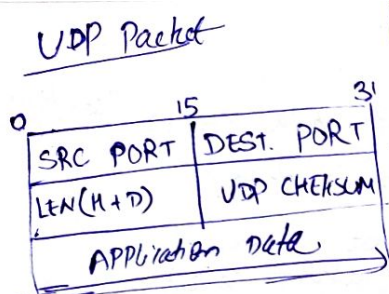 UDP Packet
0 15 31
SRC PORT DEST. PORT
LEN(H+D) UDP CHEHSUM
APPLication Data